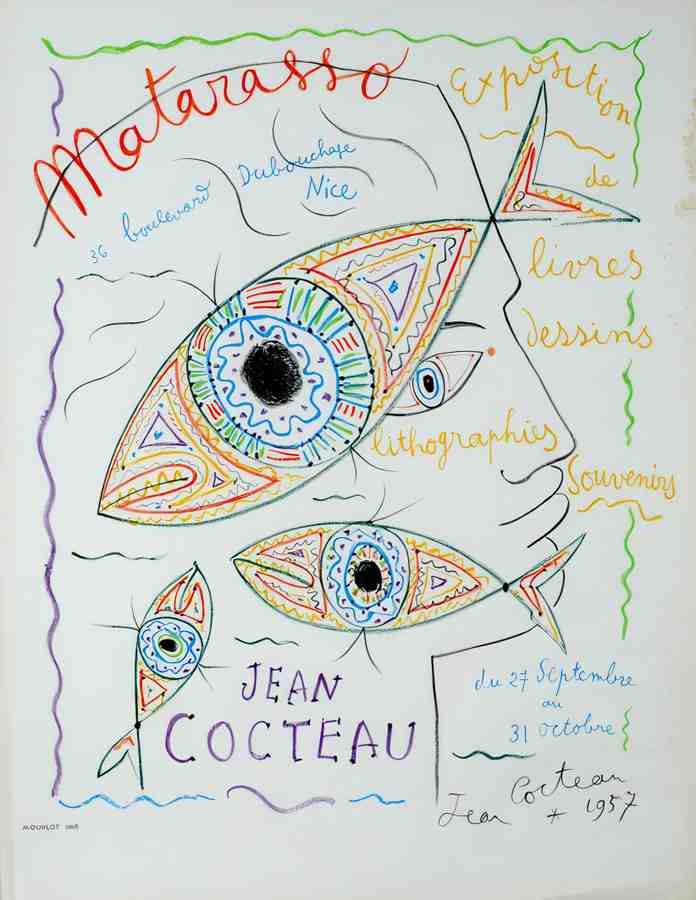 Matarasso
36 boulevard Dubouchage
Nice
Exposition
de
livres
dessins
lithographies
Souvenirs
JEAN
COCTEAU
du 27 Septembre
au
31 octobre
Jean Cocteau
* 1957
MOURLOT IMP.